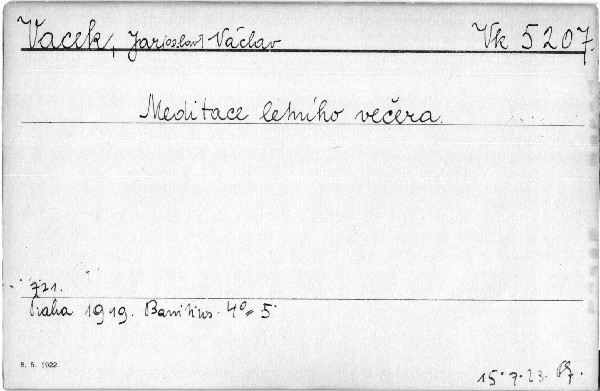 Vacek, Jar[oslav] Václav Vk 5207.
Meditace letního večera.
721.
Praha 1919. 4° 5
8. 5. 1922.
15.7.23.